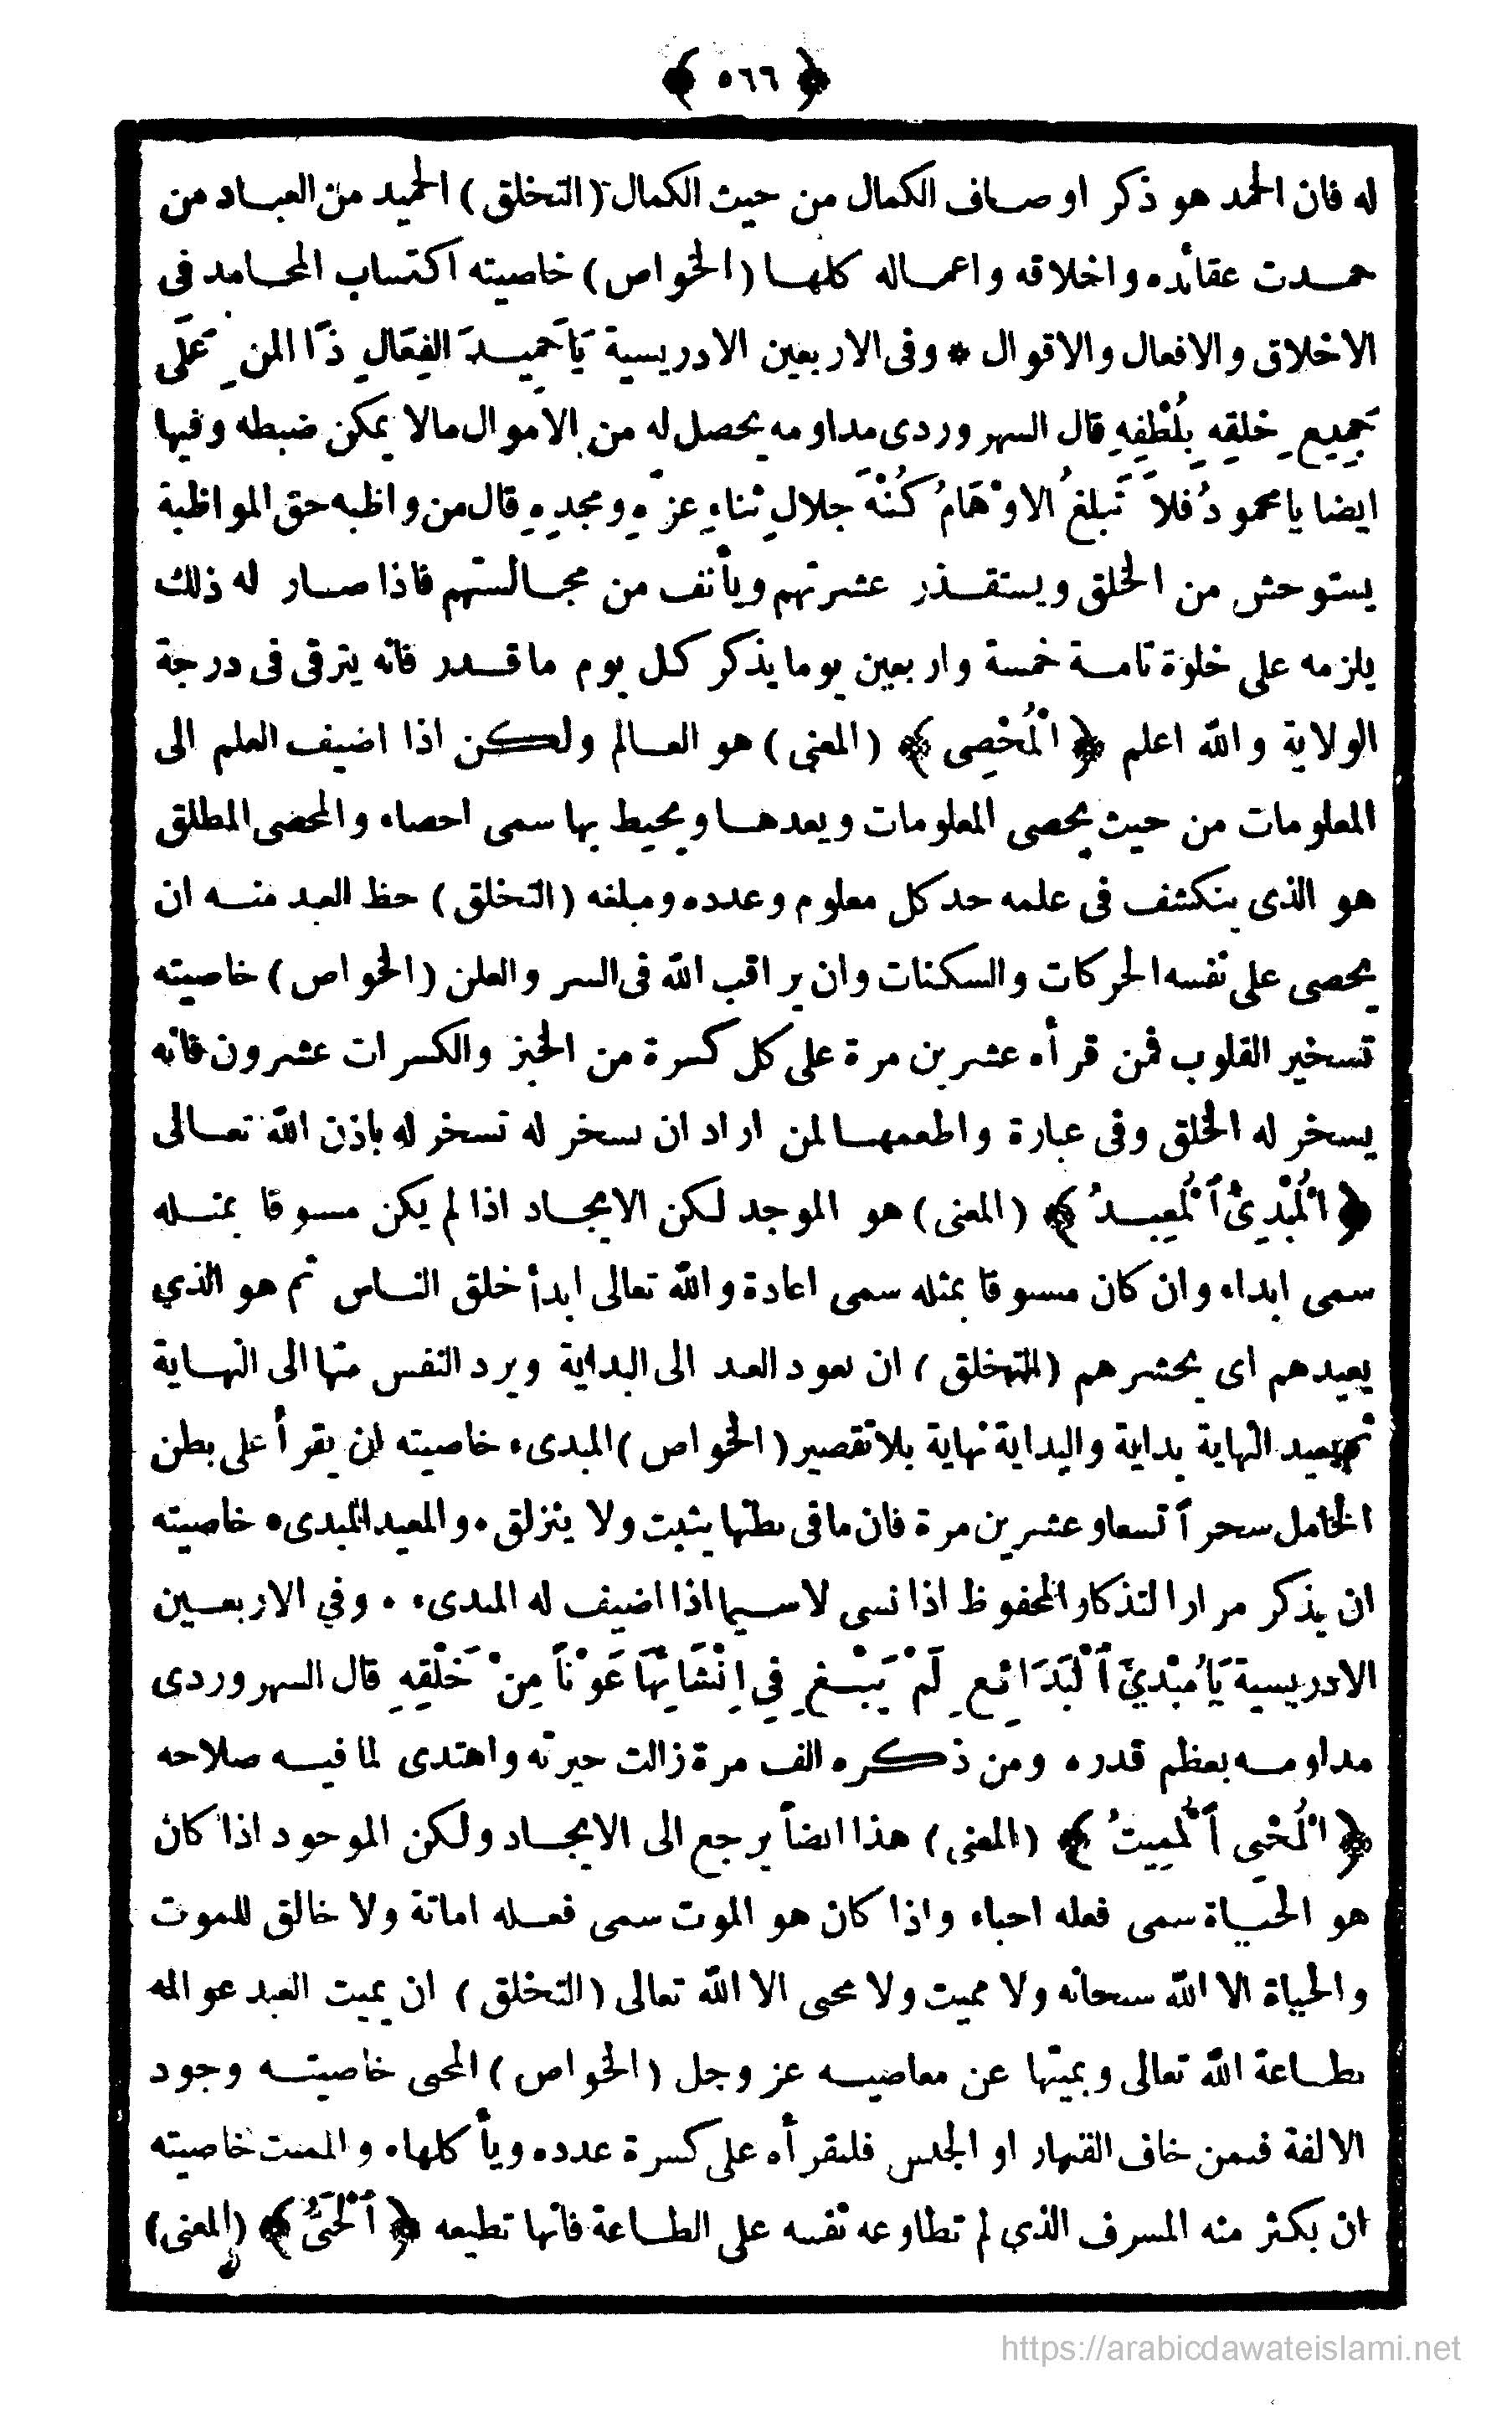 ﴿ ٥٦٦ ﴾
له فان الحمد هو ذكر اوصاف الكمال من حيث الكمال (التخلق) الحميد من العباد من
حمدت عقائده واخلاقه واعماله كلها (الخواص) خاصيته اكتساب المحامد فى
الاخلاق والافعال والاقوال * وفى الاربعين الادريسية يَا حَمِيدَ الفِعَالِ ذَا المنِ عَلَى
جَمِيعِ خلقِهِ بِلُطْفِهِ قال السهروردى مداومه يحصل له من الاموال مالا يمكن ضبطه وفيها
ايضا يا محمودُ فلاَ تَبلغُ الاوْهَامُ كُنْهَ جلالِ ثناءِ عزهِ ومجدِهِ قال من واظبه حق المواظبة
يستوحش من الخلق ويستقذر عشرتهم ويأنف من مجالستهم فاذا صار له ذلك
يلزمه على خلوة تامة خمسة واربعين يوما يذكر كل يوم ما قدر فانه يترقى فى درجة
الولاية والله اعلم ﴿ الْمُحْصِى ﴾ (المعنى) هو العالم ولكن اذا اضيف العلم الى
المعلومات من حيث يحصى المعلومات ويعدها ويحيط بها سمى احصاء والمحصى المطلق
هو الذى ينكشف فى علمه حد كل معلوم وعدده ومبلغه (التخلق) حظ العبد منه ان
يحصى على نفسه الحركات والسكنات وان يراقب الله فى السر والعلن (الخواص) خاصيته
تسخير القلوب فمن قرأه عشرين مرة على كل كسرة من الخبز والكسرات عشرون فانه
يسخر له الخلق وفى عبارة واطعمها لمن اراد ان يسخر له تسخر له باذن الله تعالى
﴿ الْمُبْدِئُ ٱلْمُعِيدُ ﴾ (المعنى) هو الموجد لكن الايجاد اذا لم يكن مسبوقا بمثله
سمى ابداء وان كان مسبوقا بمثله سمى اعادة والله تعالى ابدأ خلق الناس ثم هو الذي
يعيدهم اى يحشرهم (التخلق) ان يعود العبد الى البداية ويرد النفس منها الى النهاية
ثم يعيد النهاية بداية والبداية نهاية بلا تقصير (الخواص) المبدىء خاصيته ان يقرأ على بطن
الحامل سحراً تسعا وعشرين مرة فان ما فى بطنها يثبت ولا ينزلق ٠ والمعيد المبدىء خاصيته
ان يذكر مرارا لتذكار المحفوظ اذا نسى لاسيما اذا اضيف له المبدىء ٠ وفي الاربعين
الادريسية يَا مُبْدِئَ ٱلْبَدَائِعِ لَمْ يَبْغِ فِي اِنْشَائِهَا عَوْناً مِنْ خَلْقِهِ قال السهروردى
مداومه يعظم قدره ومن ذكره الف مرة زالت حيرته واهتدى لما فيه صلاحه
﴿ الْمُحْيِى ٱلْمُمِيتُ ﴾ (المعنى) هذا ايضاً يرجع الى الايجاد ولكن الموجود اذا كان
هو الحياة سمى فعله احياء واذا كان هو الموت سمى فعله اماتة ولا خالق للموت
والحياة الا الله سبحانه ولا مميت ولا محيى الا الله تعالى (التخلق) ان يميت العبد عوالمه
بطاعة الله تعالى ويميتها عن معاصيه عز وجل (الخواص) المحيى خاصيته وجود
الالفة فمن خاف القهار او الحبس فليقرأه على كسرة عدده ويأكلها ٠ والمميت خاصيته
ان يكثر منه المسرف الذي لم تطاوعه نفسه على الطاعة فانها تطيعه ﴿ ٱلْحَىُّ ﴾ (المعنى)
https://arabicdawateislami.net